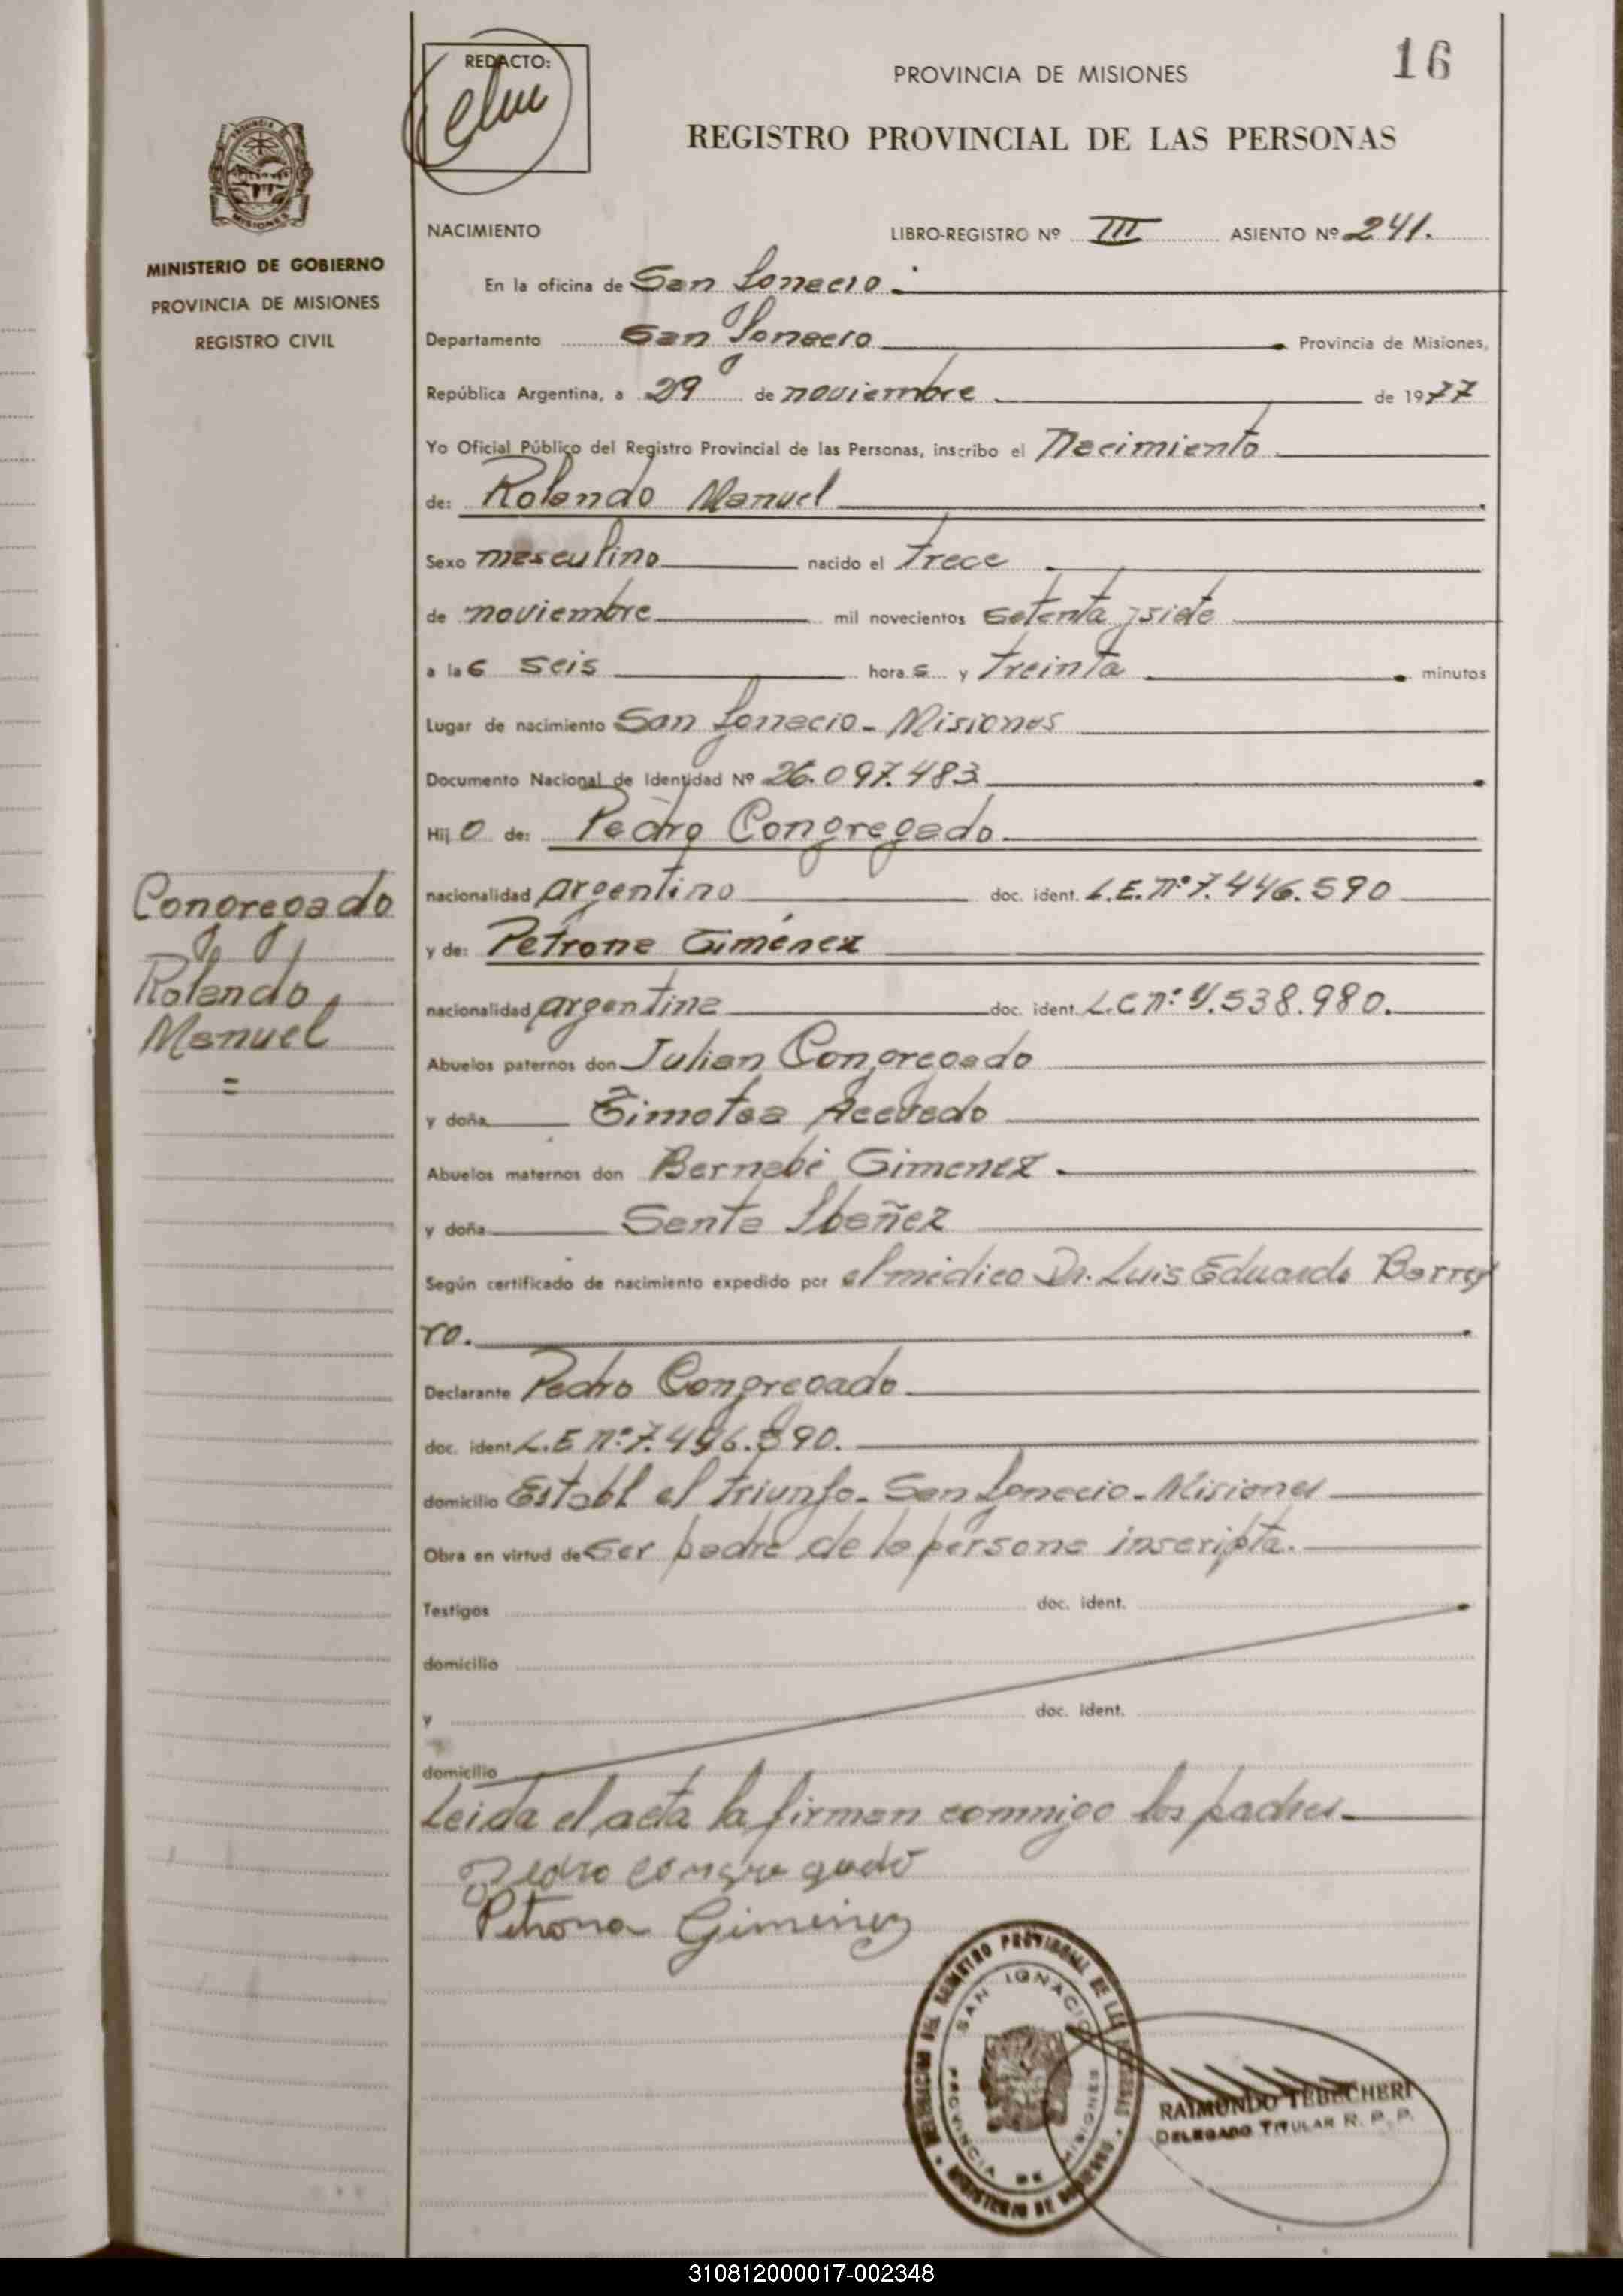 16
REDACTO:
PROVINCIA DE MISIONES
REGISTRO PROVINCIAL DE LAS PERSONAS
MISIONES
MINISTERIO DE GOBIERNO
PROVINCIA DE MISIONES
REGISTRO CIVIL
NACIMIENTO LIBRO-REGISTRO Nº III ASIENTO Nº 241.
En la oficina de San Ignacio.
Departamento San Ignacio Provincia de Misiones,
República Argentina, a 29 de noviembre de 1977
Yo Oficial Público del Registro Provincial de las Personas, inscribo el Nacimiento
de: Rolando Manuel
Sexo masculino nacido el trece
de noviembre mil novecientos setenta y siete
a las seis horas y treinta minutos
Lugar de nacimiento San Ignacio - Misiones
Documento Nacional de Identidad Nº 26.097.483
Hijo de: Pedro Congregado
nacionalidad argentino doc. ident. L.E. Nº 7.446.590
y de: Petrona Giménez
nacionalidad argentina doc. ident. L.C Nº 4.538.980.
Abuelos paternos don Julian Congregado
y doña Timotea Acevedo
Abuelos maternos don Bernabé Gimenez
y doña Santa Ibañez
Según certificado de nacimiento expedido por el médico Dr. Luis Eduardo Barrey
ro.
Declarante Pedro Congregado
doc. ident. L.E Nº 7.446.590.
domicilio Establ el triunfo - San Ignacio - Misiones
Obra en virtud de ser padre de la persona inscripta.
Testigos doc. ident.
domicilio
y doc. ident.
domicilio
Leida el acta la firman conmigo los padres
Pedro congregado
Petrona Gimenez
Congregado
Rolando
Manuel
=
DELEGACION DEL REGISTRO PROVINCIAL DE LAS PERSONAS
SAN IGNACIO
PROVINCIA DE MISIONES
MINISTERIO DE GOBIERNO
RAIMUNDO TEBECHERI
DELEGADO TITULAR R. P. P.
310812000017-002348